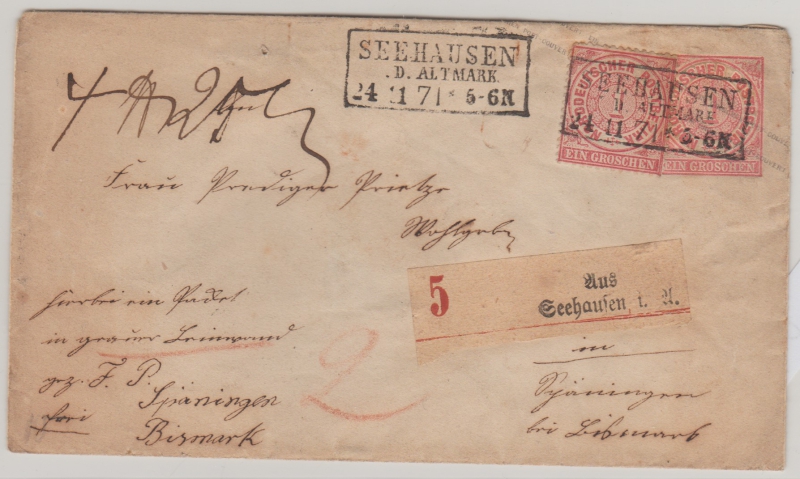 SEEHAUSEN
D. ALTMARK
24 11 71 * 5-6N
NORDDEUTSCHER POSTBEZIRK
1
EIN GROSCHEN
EIN GROSCHEN
SEEHAUSEN
D. ALTMARK
24 11 71 * 5-6N
4
Frau Prediger Prietze
Wohlgeb
5
Aus
Seehausen i. A.
hierbei ein Packet
in grauer Leinwand
gez. F. P.
Späningen
frei
Bismark
2
in
Späningen
bei Bismark